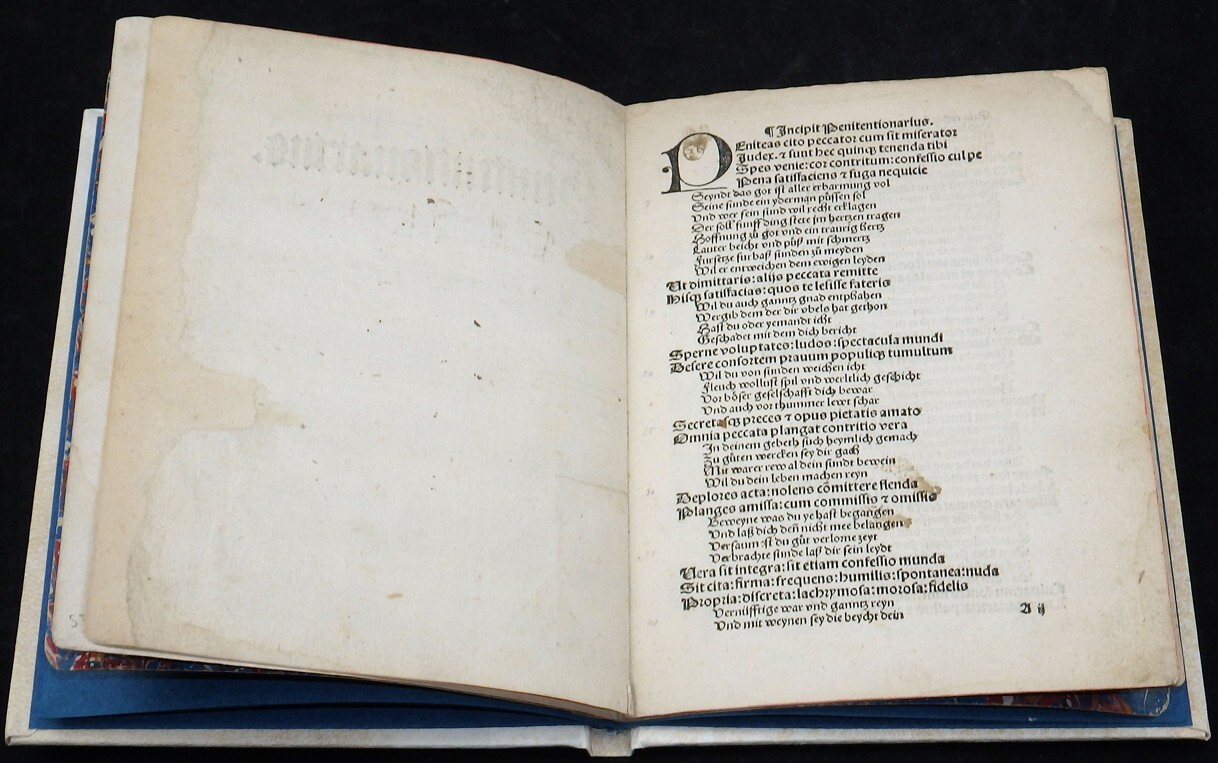 ¶ Incipit Penitentionarius.
PEniteas cito peccator cum sit miserator
Judex. ⁊ sunt hec quinqꝫ tenenda tibi
Spes venie: cor contritum: confessio culpe
Pena satisfaciens ⁊ fuga nequicie
Seyndt das got ist aller erbarmung vol
Seine sunde ein yderman püssen sol
Vnd wer sein sund wil recht erklagen
Der soll funff ding stete jm hertzen tragen
Hoffnung zů got vnd ein traurig hertz
Lauter beicht vnd půß mit schmertz
Fursetze fur baß sunden zů meyden
Wil er entweichen dem ewigen leyden
Ut dimittaris: alijs peccata remitte
Hisqꝫ satisfacias: quos te lesisse fateris
Wil du auch ganntz gnad entphahen
Vergib dem der dir vbels hat gethon
Hast du oder yemandt icht
Geschadet mit dem dich bericht
Sperne voluptates: ludos: spectacula mundi
Desere consortem prauum populiqꝫ tumultum
Wil du von sunden weichen icht
Fleuch wollust spil vnd werltlich geschicht
Vor böser geselschafft dich bewar
Vnd auch vor thummer lewt schar
Secretasqꝫ preces ⁊ opus pietatis amato
Omnia peccata plangat contritio vera
In deinem gebeth such heymlich gemach
Zu gůten wercken sey dir gach
Mit warer rew al dein sundt bewein
Wil du dein leben machen reyn
Deplores acta: nolens cōmittere flenda
Planges amissa: cum commissis ⁊ omissis
Beweyne was du ye hast begangen
Vnd laß dich deñ nicht mee belangen
Versaumst du gůt verlorne zeyt
Verbrachte sunde laß dir sein leydt
Vera sit integra: sit etiam confessio munda
Sit cita: firma: frequens: humilis: spontanea: nuda
Propria: discreta: lachrymosa: morosa: fidelis
Vernüfftige war vnd ganntz reyn
Vnd mit weynen sey die beycht dein
A ij